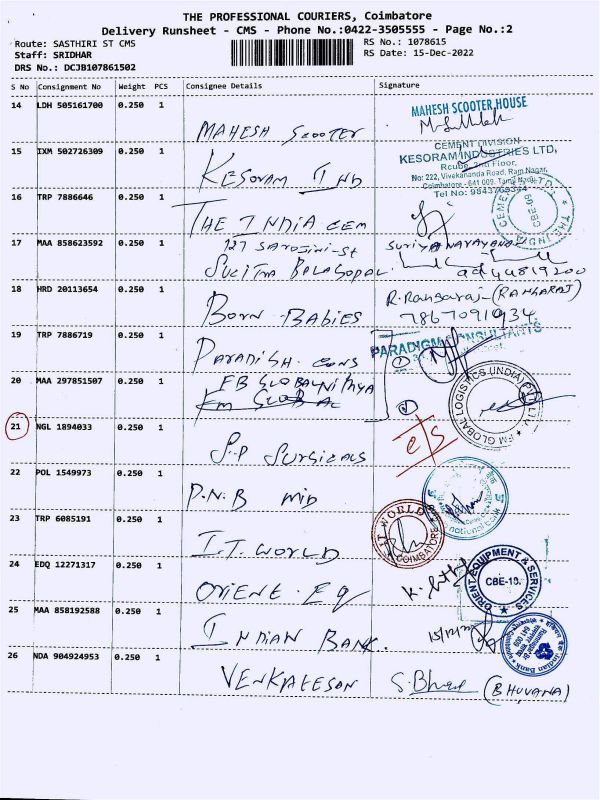 THE PROFESSIONAL COURIERS, Coimbatore
Delivery Runsheet - CMS - Phone No.:0422-3505555 - Page No.:2
Route: SASTHIRI ST CMS
RS No.: 1078615
Staff: SRIDHAR
RS Date: 15-Dec-2022
DRS No.: DCJB107861502
S No Consignment No Weight PCS Consignee Details Signature
14 LDH 505161700 0.250 1
MAHESH SCOOTER HOUSE
MAHESH SCOOTER
15 IXM 502726309 0.250 1
CEMENT DIVISION
KESORAM INDUSTRIES LTD,
Floor,
No: 222, Vivekananda Road, Ram Nagar,
Coimbatore - 641 009. Tamil Nadu
Tel No:
KESORAM IND
16 TRP 7886646 0.250 1
THE INDIA CEM
17 MAA 858623592 0.250 1
127 SAROJINI-St
SURIYANARAYANAN
SUCITRA BALAGOPAL
18 HRD 20113654 0.250 1
R. Rangaraj (RANGARAJ)
BORN BABIES
7867091934
19 TRP 7886719 0.250 1
PARADIGM CONSULTANTS
PARADISH. CONS
①
20 MAA 297851507 0.250 1
FM GLOBAL LOGISTICS (INDIA) PVT. LTD.
②
21 NGL 1894033 0.250 1
S.P SURGICALS
C/S
22 POL 1549973 0.250 1
P.N.B MID
national bank
23 TRP 6085191 0.250 1
I.T. WORLD
I.T. WORLD
COIMBATORE
24 EDQ 12271317 0.250 1
ORIENT. EQ
ORIENT EQUIPMENT & SERVICES
CBE-18.
25 MAA 858192588 0.250 1
INDIAN BANK.
15/12/22
Indian Bank
26 NDA 904924953 0.250 1
VENKATESON
(BHUVANA)